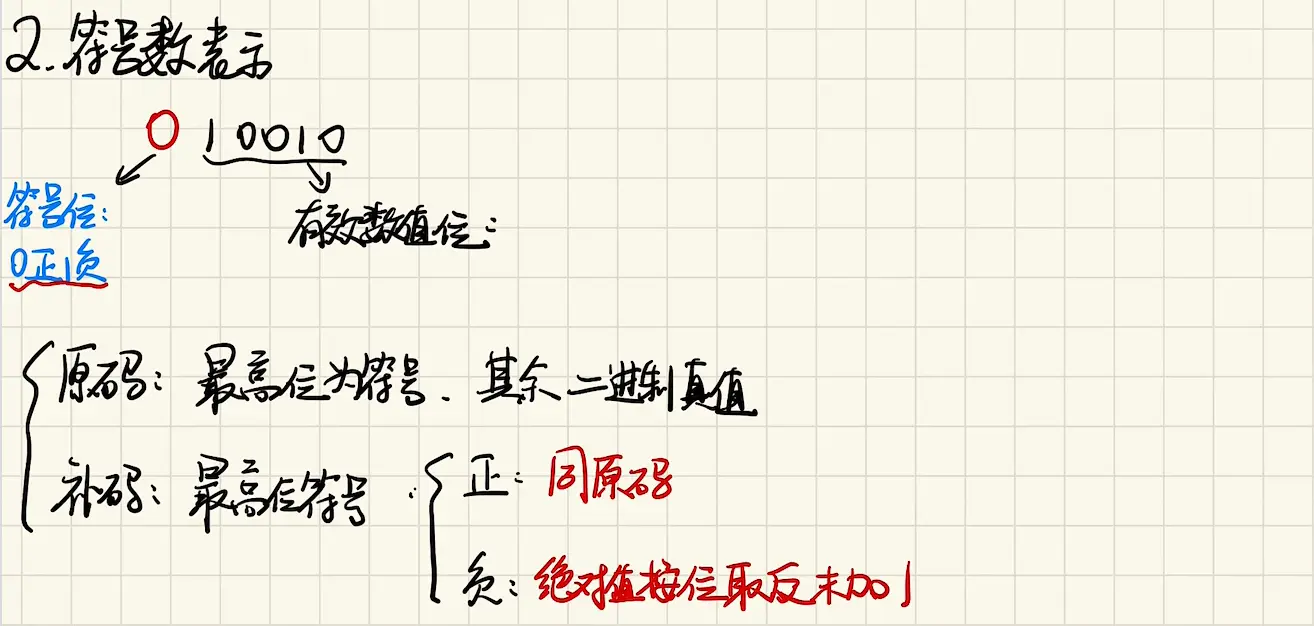 2.符号数表示
0 10010
符号位:
有效数值位:
0正1负
原码: 最高位为符号、其余二进制真值
补码: 最高位符号. 正: 同原码
负: 绝对值按位取反末加1